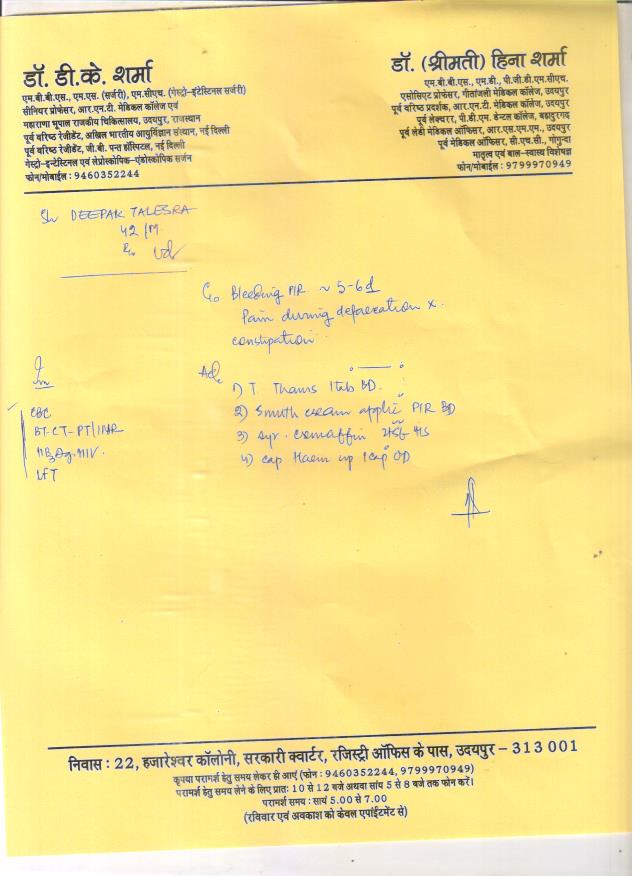 डॉ. डी.के. शर्मा
एम.बी.बी.एस., एम.एस. (सर्जरी), एम.सीएच. (गेस्ट्रो-इंटेस्टिनल सर्जरी)
सीनियर प्रोफेसर, आर.एन.टी. मेडिकल कॉलेज एवं
महाराणा भूपाल राजकीय चिकित्सालय, उदयपुर, राजस्थान
पूर्व वरिष्ठ रेजीडेंट, अखिल भारतीय आयुर्विज्ञान संस्थान, नई दिल्ली
पूर्व वरिष्ठ रेजीडेंट, जी.बी. पन्त हॉस्पिटल, नई दिल्ली
गेस्ट्रो-इन्टेस्टिनल एवं लेप्रोस्कोपिक-एंडोस्कोपिक सर्जन
फोन/मोबाईल : 9460352244
डॉ. (श्रीमती) हिना शर्मा
एम.बी.बी.एस., एम.डी., पी.जी.डी.एम.सीएच.
एसोसिएट प्रोफेसर, गीतांजली मेडिकल कॉलेज, उदयपुर
पूर्व वरिष्ठ प्रदर्शक, आर.एन.टी. मेडिकल कॉलेज, उदयपुर
पूर्व लेक्चरर, पी.डी.एम. डेन्टल कॉलेज, बहादुरगढ़
पूर्व लेडी मेडिकल ऑफिसर, आर.एस.एम.एम., उदयपुर
पूर्व मेडिकल ऑफिसर, सी.एच.सी., गोगुन्दा
मातृत्व एवं बाल-स्वास्थ्य विशेषज्ञ
फोन/मोबाईल : 9799970949
Sh DEEPAK TALESRA
42/M
C/o Bleeding P/R ~ 5-6d
Pain during defaecation x
constipation
Adv
1) T. Thams 1tab BD
2) Smuth cream applic P/R BD
3) Syr. Cremaffin HS
4) Cap Haem up 1cap OD
CBC
BT-CT-PT/INR
HBsAg. HIV.
LFT
निवास : 22, हजारेश्वर कॉलोनी, सरकारी क्वार्टर, रजिस्ट्री ऑफिस के पास, उदयपुर - 313 001
कृपया परामर्श हेतु समय लेकर ही आएं (फोन : 9460352244, 9799970949)
परामर्श हेतु समय लेने के लिए प्रातः 10 से 12 बजे अथवा सांय 5 से 8 बजे तक फोन करें।
परामर्श समय : सायं 5.00 से 7.00
(रविवार एवं अवकाश को केवल एपॉइंटमेंट से)